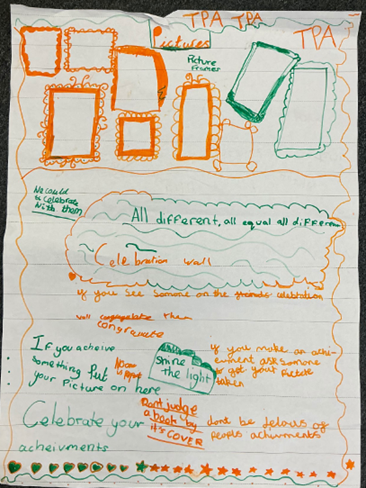 TPA TPA
TPA
Pictures
Picture
Frames
We could
celebrate
with them
All different, all equal all differen
Celebration wall
if you see somone on the celebration
wall them
congratulate
If you acheive
something put
your picture on here
shine
the light
if you make an achi-
evment ask someone
to get your picture
taken
Dont judge
a book by
it's COVER
dont be jelous of
peoples achivments
Celebrate your
acheivments